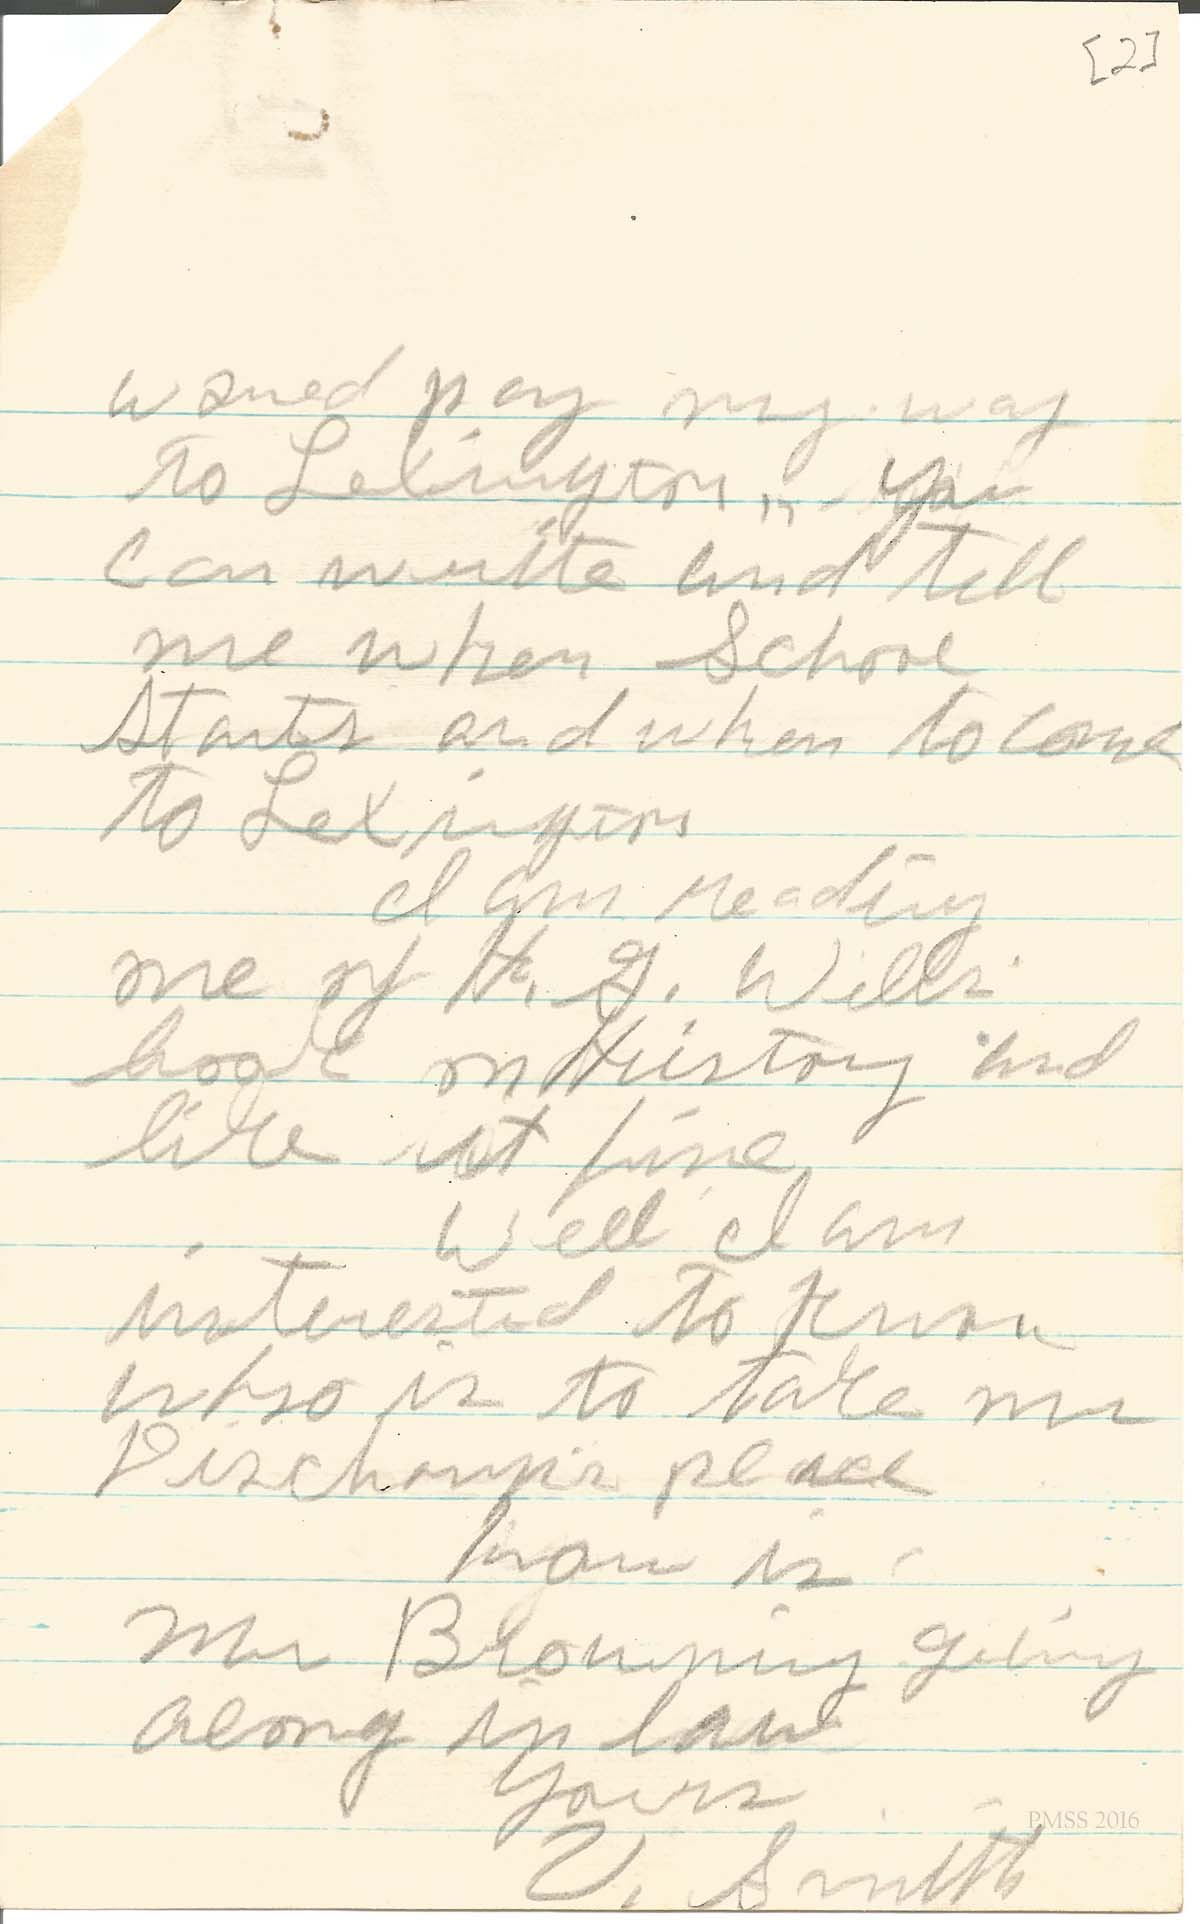 [2]
pay my way
to Lexington, you
can write and tell
me when School
starts and when to come
to Lexington
I am reading
one of H. G. Wells
book on History and
like it fine
Well I am
interested to know
who is to take Mr
place
how is
Mr Browning going
along in law
Yours
V. Smith
PMSS 2016